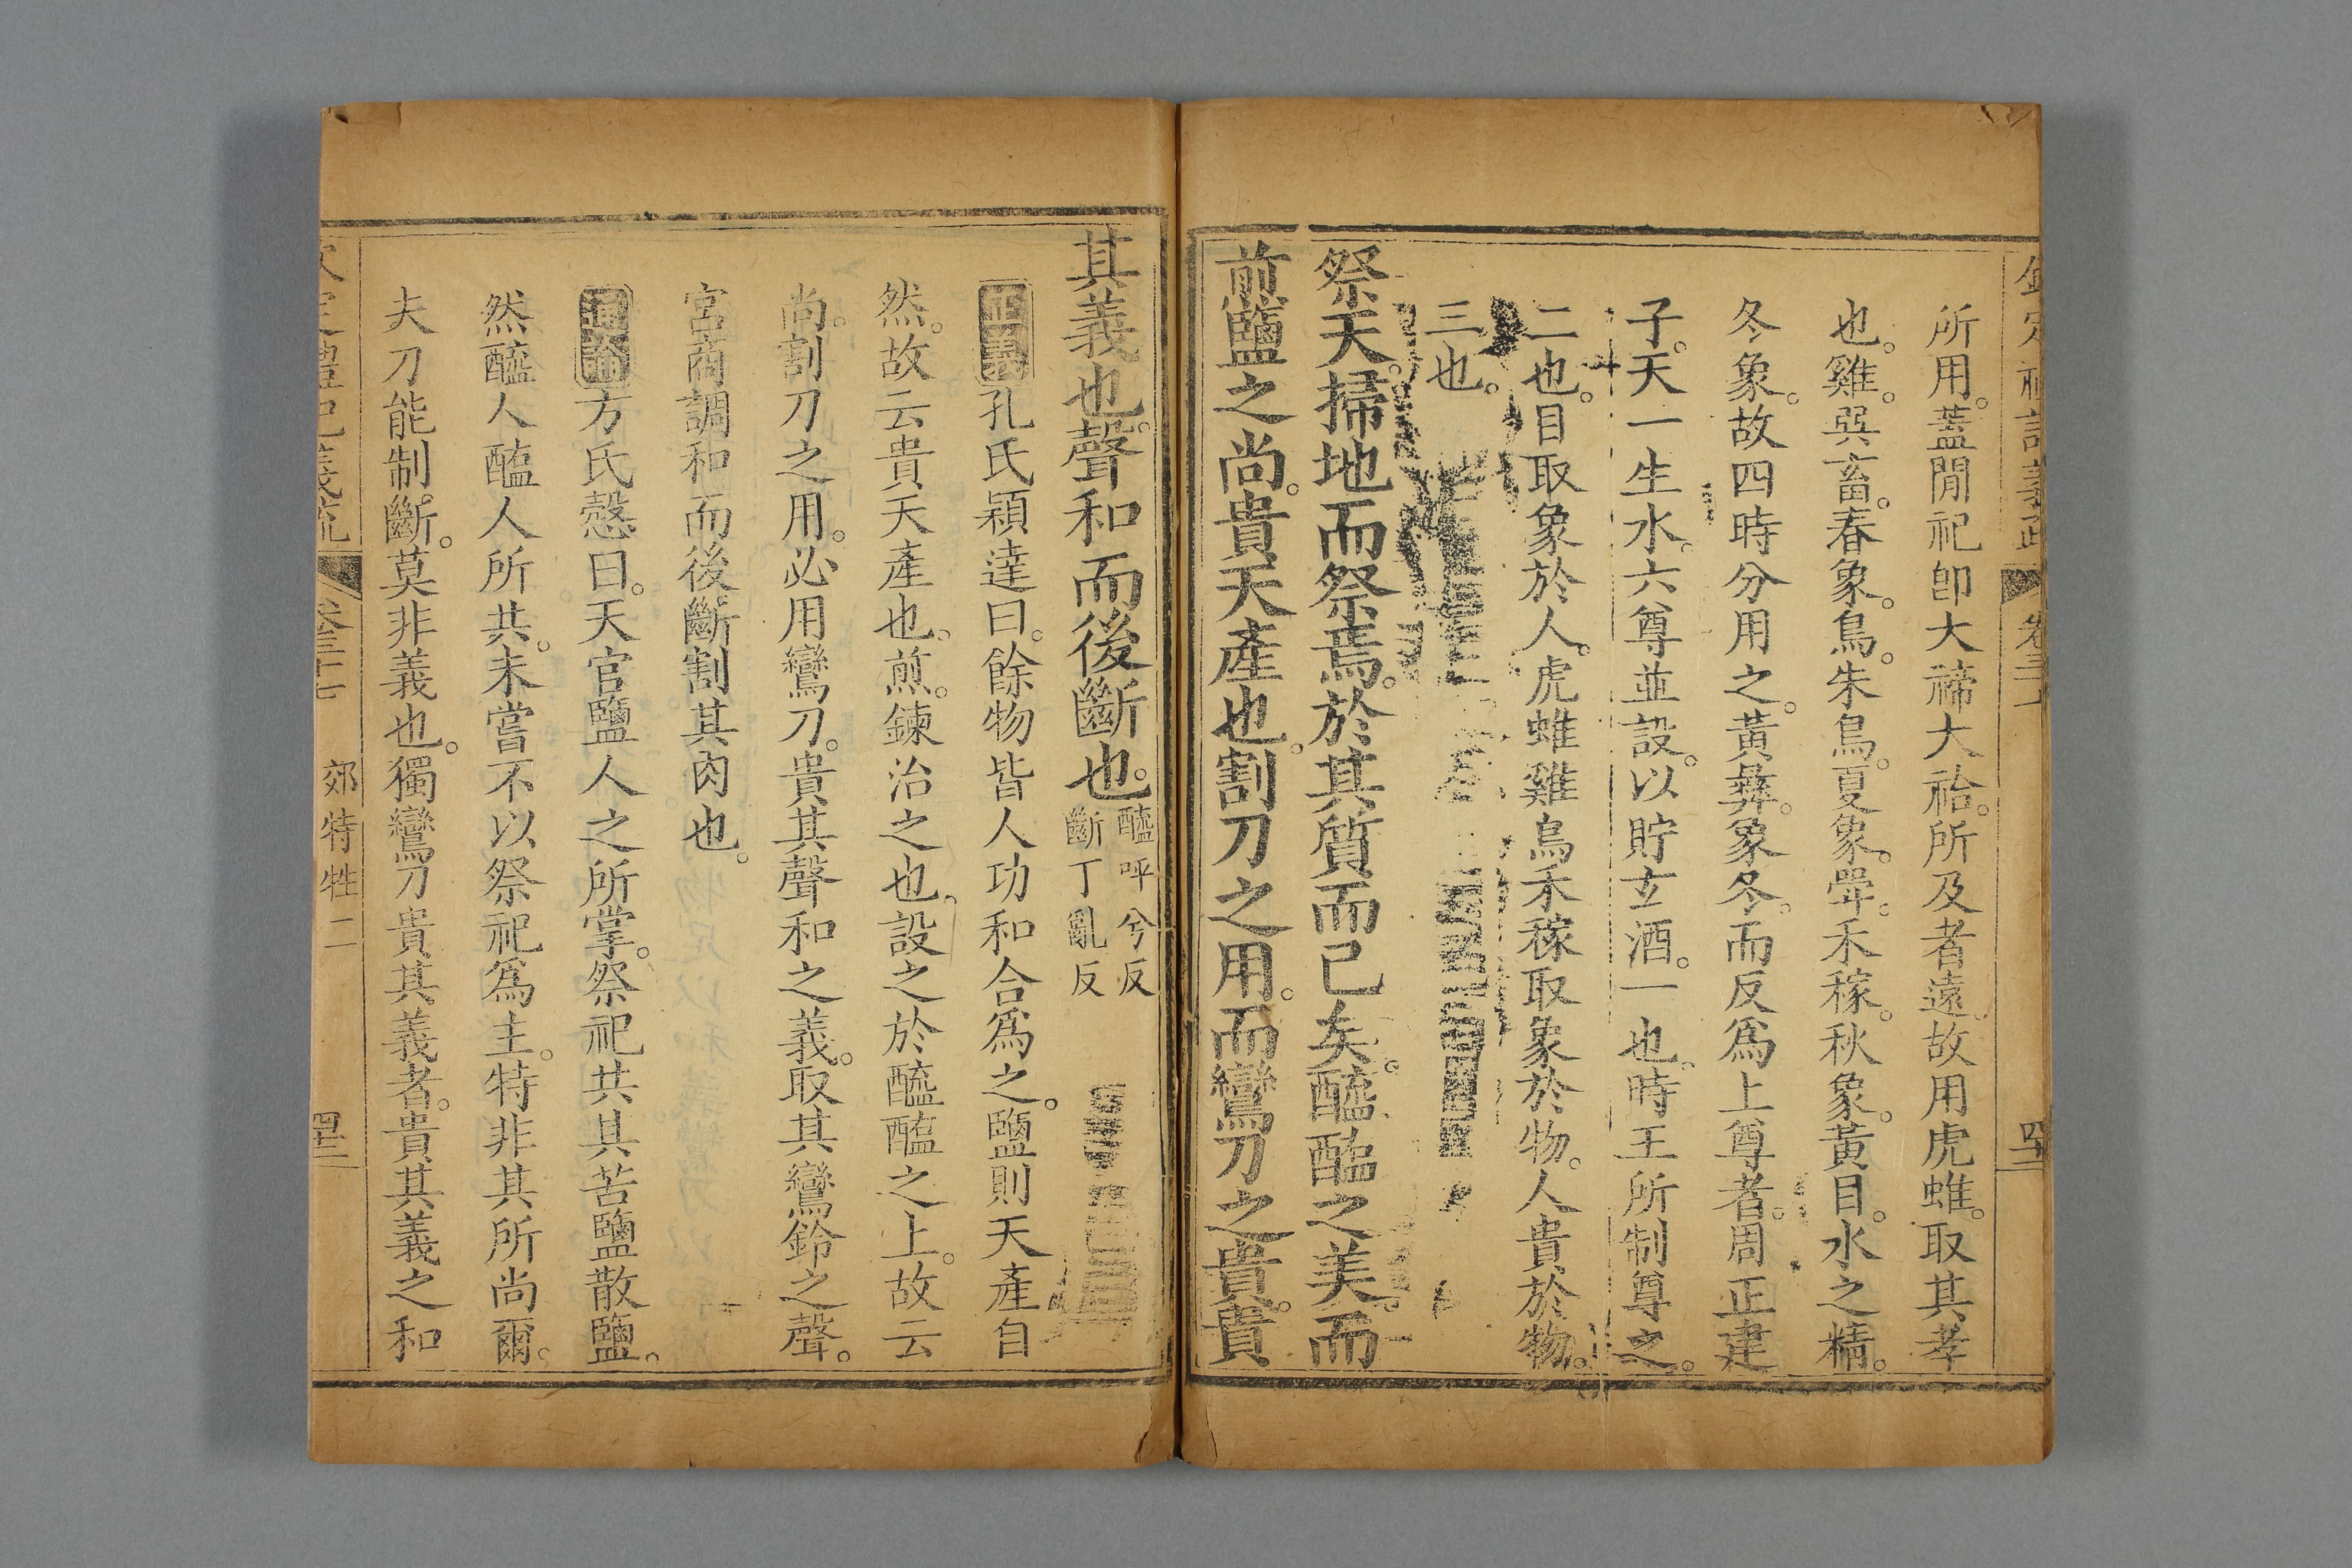 欽定禮記義疏 卷三十七 四十三
所用。蓋閒祀卽大禘大祫。所及者遠。故用虎蜼。取其孝
也。雞。巽畜。春象。鳥。朱鳥。夏象。斝。禾稼。秋象。黃目。水之精。
冬象。故四時分用之。黃彝。象冬。而反爲上尊者。周正建
子。天一生水。六尊並設。以貯玄酒。一也。時王所制尊之。
二也。目取象於人。虎蜼雞鳥禾稼取象於物。人貴於物。
三也。
祭天。掃地而祭焉。於其質而已矣。醯醢之美。而
煎鹽之尚。貴天產也。割刀之用。而鸞刀之貴。貴
其義也。聲和而後斷也。醯呼兮反
斷丁亂反
正義孔氏穎達曰。餘物皆人功和合爲之。鹽則天產自
然。故云貴天產也。煎。鍊治之也。設之於醯醢之上。故云
尚。割刀之用。必用鸞刀。貴其聲和之義。取其鸞鈴之聲。
宮商調和而後斷割其肉也。
通論方氏慤曰。天官鹽人之所掌。祭祀共其苦鹽散鹽。
然醯人醢人所共。未嘗不以祭祀爲主。特非其所尚爾。
夫刀能制斷。莫非義也。獨鸞刀貴其義者。貴其義之和
欽定禮記義疏 卷三十七 郊特牲二 四十三